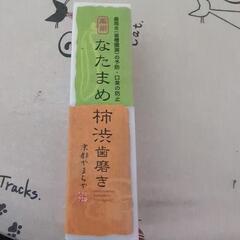 薬用
歯周炎(歯槽膿漏)の予防・口臭の防止
なたまめ
柿渋歯磨き
京都やまちや
Tracks.
cat.